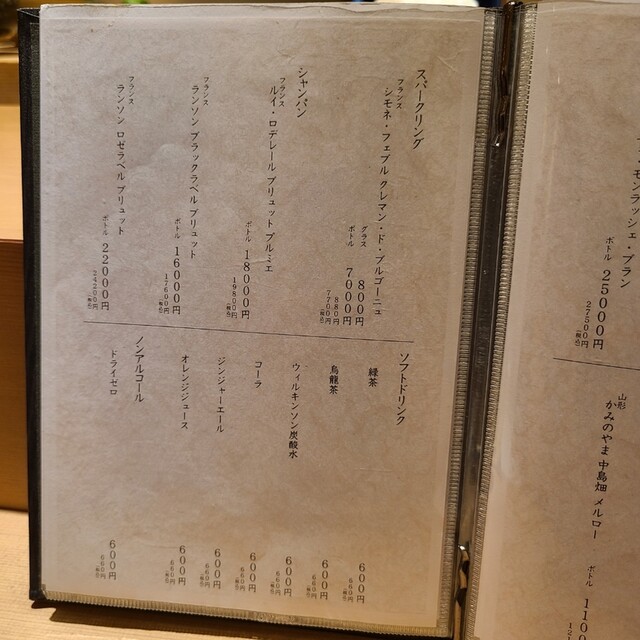 スパークリング
フランス
シモネ・フェブル クレマン・ド・ブルゴーニュ
グラス 800円
880円(税込)
ボトル 7000円
7700円(税込)
シャンパン
フランス
ルイ・ロデレール ブリュット プルミエ
ボトル 18000円
19800円(税込)
フランス
ランソン ブラックラベル ブリュット
ボトル 16000円
17600円(税込)
フランス
ランソン ロゼラベル ブリュット
ボトル 22000円
24200円(税込)
ソフトドリンク
緑茶 600円
660円(税込)
烏龍茶 600円
660円(税込)
ウィルキンソン炭酸水 600円
660円(税込)
コーラ 600円
660円(税込)
ジンジャーエール 600円
660円(税込)
オレンジジュース 600円
660円(税込)
ノンアルコール
ドライゼロ 600円
660円(税込)
モンラッシェ・ブラン
ボトル 25000円
27500円(税込)
山形
かみのやま 中島畑 メルロー
ボトル